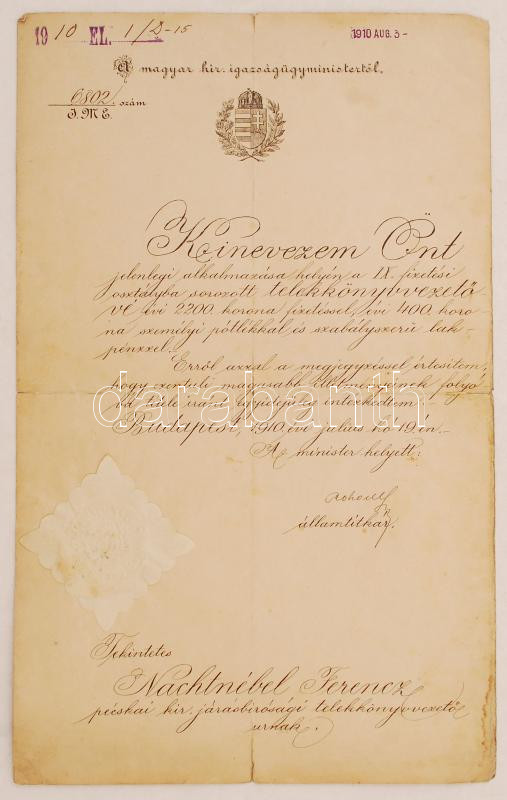 1910 EL. 1/D-15
1910 AUG. 3-
A magyar kir. igazságügyministertől.
6802. szám
I. M. E.
Kinevezem Önt
jelenlegi alkalmazása helyén a IX. fizetési
osztályba sorozott telekkönyvvezető-
vé évi 2200 korona fizetéssel, évi 400 koro
na személyi pótlékkal és szabályszerű lak-
pénzzel.
Erről azzal a megjegyzéssel értesítem,
hogy ezentúli magasabb illetményeinek folyó
iránt egyidejűleg intézkedtem.
Budapest, 1910. évi július hó 19.én.
A minister helyett:
államtitkár.
Tekintetes
Nachtnébel Ferencz
pécskai kir. járásbirósági telekkönyvvezető
urnak.
darabanth